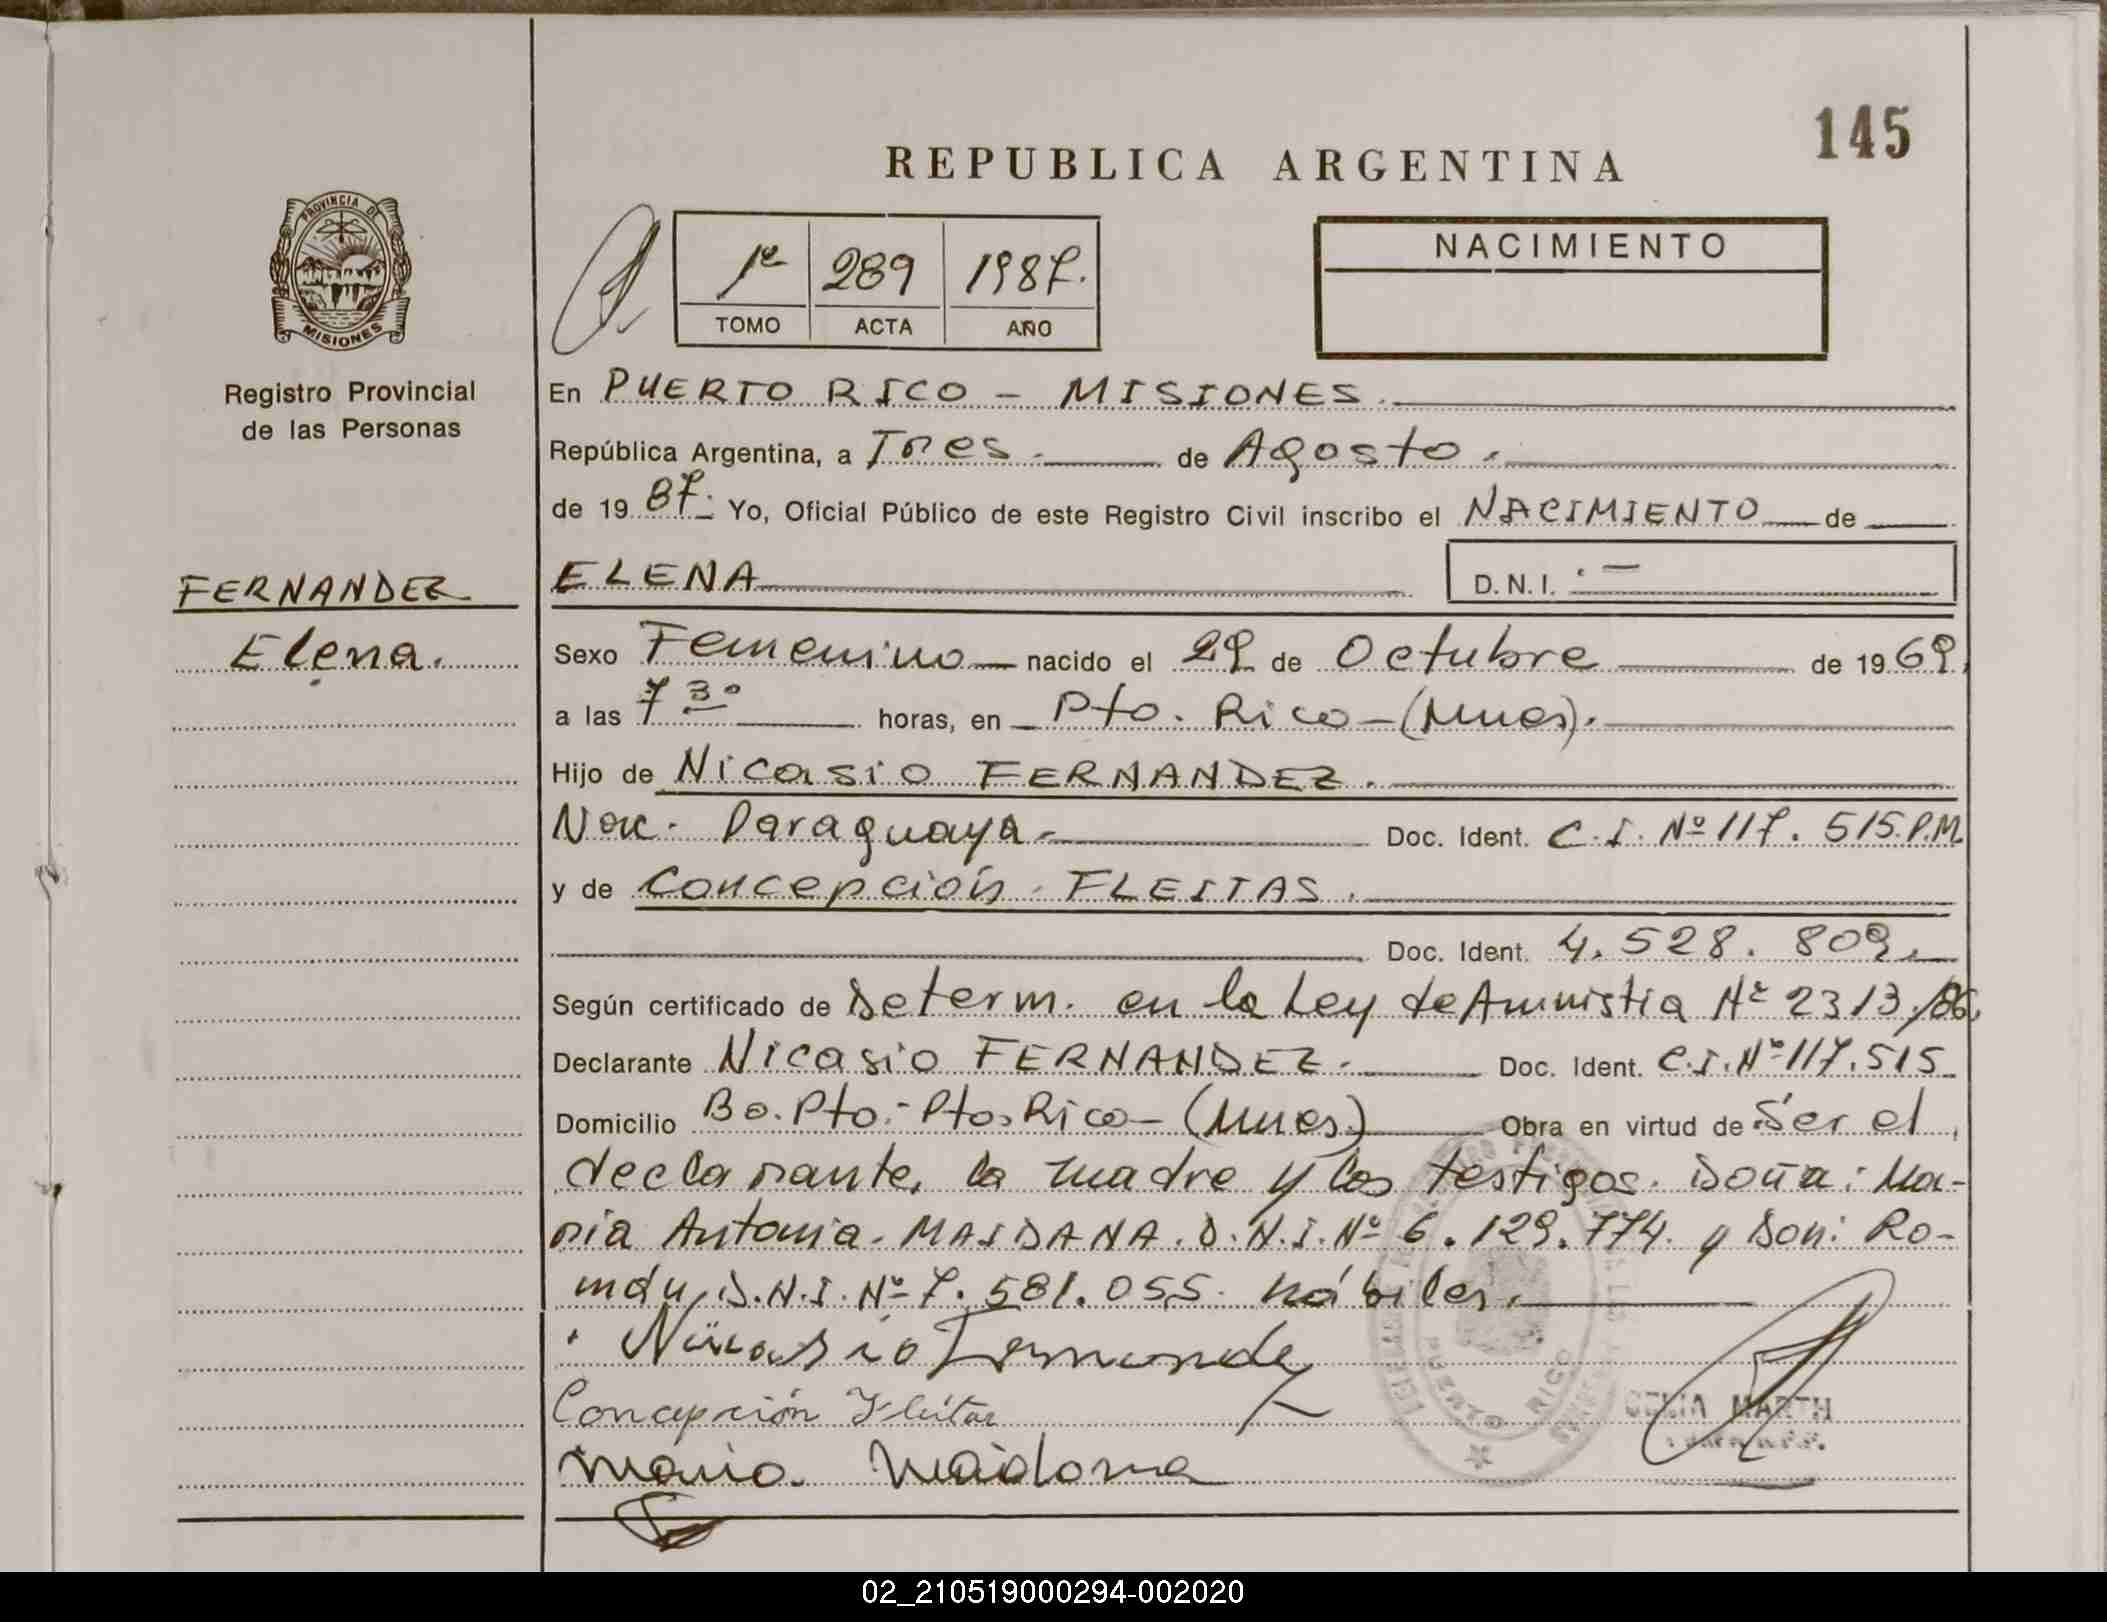 145
REPUBLICA ARGENTINA
PROVINCIA DE
MISIONES
1º 289 1987.
TOMO ACTA AÑO
NACIMIENTO
Registro Provincial
de las Personas
En PUERTO RICO - MISIONES.
República Argentina, a Tres. de Agosto.
de 19 87. Yo, Oficial Público de este Registro Civil inscribo el NACIMIENTO de
FERNANDEZ
Elena.
ELENA D.N.I. -
Sexo Femenino nacido el 29 de Octubre de 1969,
a las 7 30 horas, en Pto. Rico - (Mnes).
Hijo de Nicasio FERNANDEZ.
Nac. Paraguaya. Doc. Ident. C.I. Nº 117.515.P.M
y de Concepción FLEITAS.
Doc. Ident. 4.528.809.
Según certificado de Determ. en la Ley de Amnistia Nº 2313/86.
Declarante Nicasio FERNANDEZ. Doc. Ident. C.I. Nº 117.515
Domicilio Bo. Pto. - Pto. Rico - (Mnes.) Obra en virtud de Ser el
declarante, la madre y los testigos. Doña: Ma-
ria Antonia. MAIDANA. D.N.I. Nº 6.129.774. y Don: Ro-
D.N.I. Nº 7.581.055. hábiles.
Nicasio Fernandez
Concepción Fleitas
Maria Maidana
PUERTO RICO
02_210519000294-002020